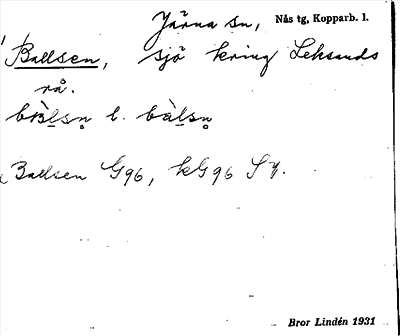 Järna sn, Nås tg, Kopparb. l.
Ballsen, sjö kring Leksands
rå.
l. bàlsn̥
Ballsen G96, kG96 SV.
Bror Lindén 1931